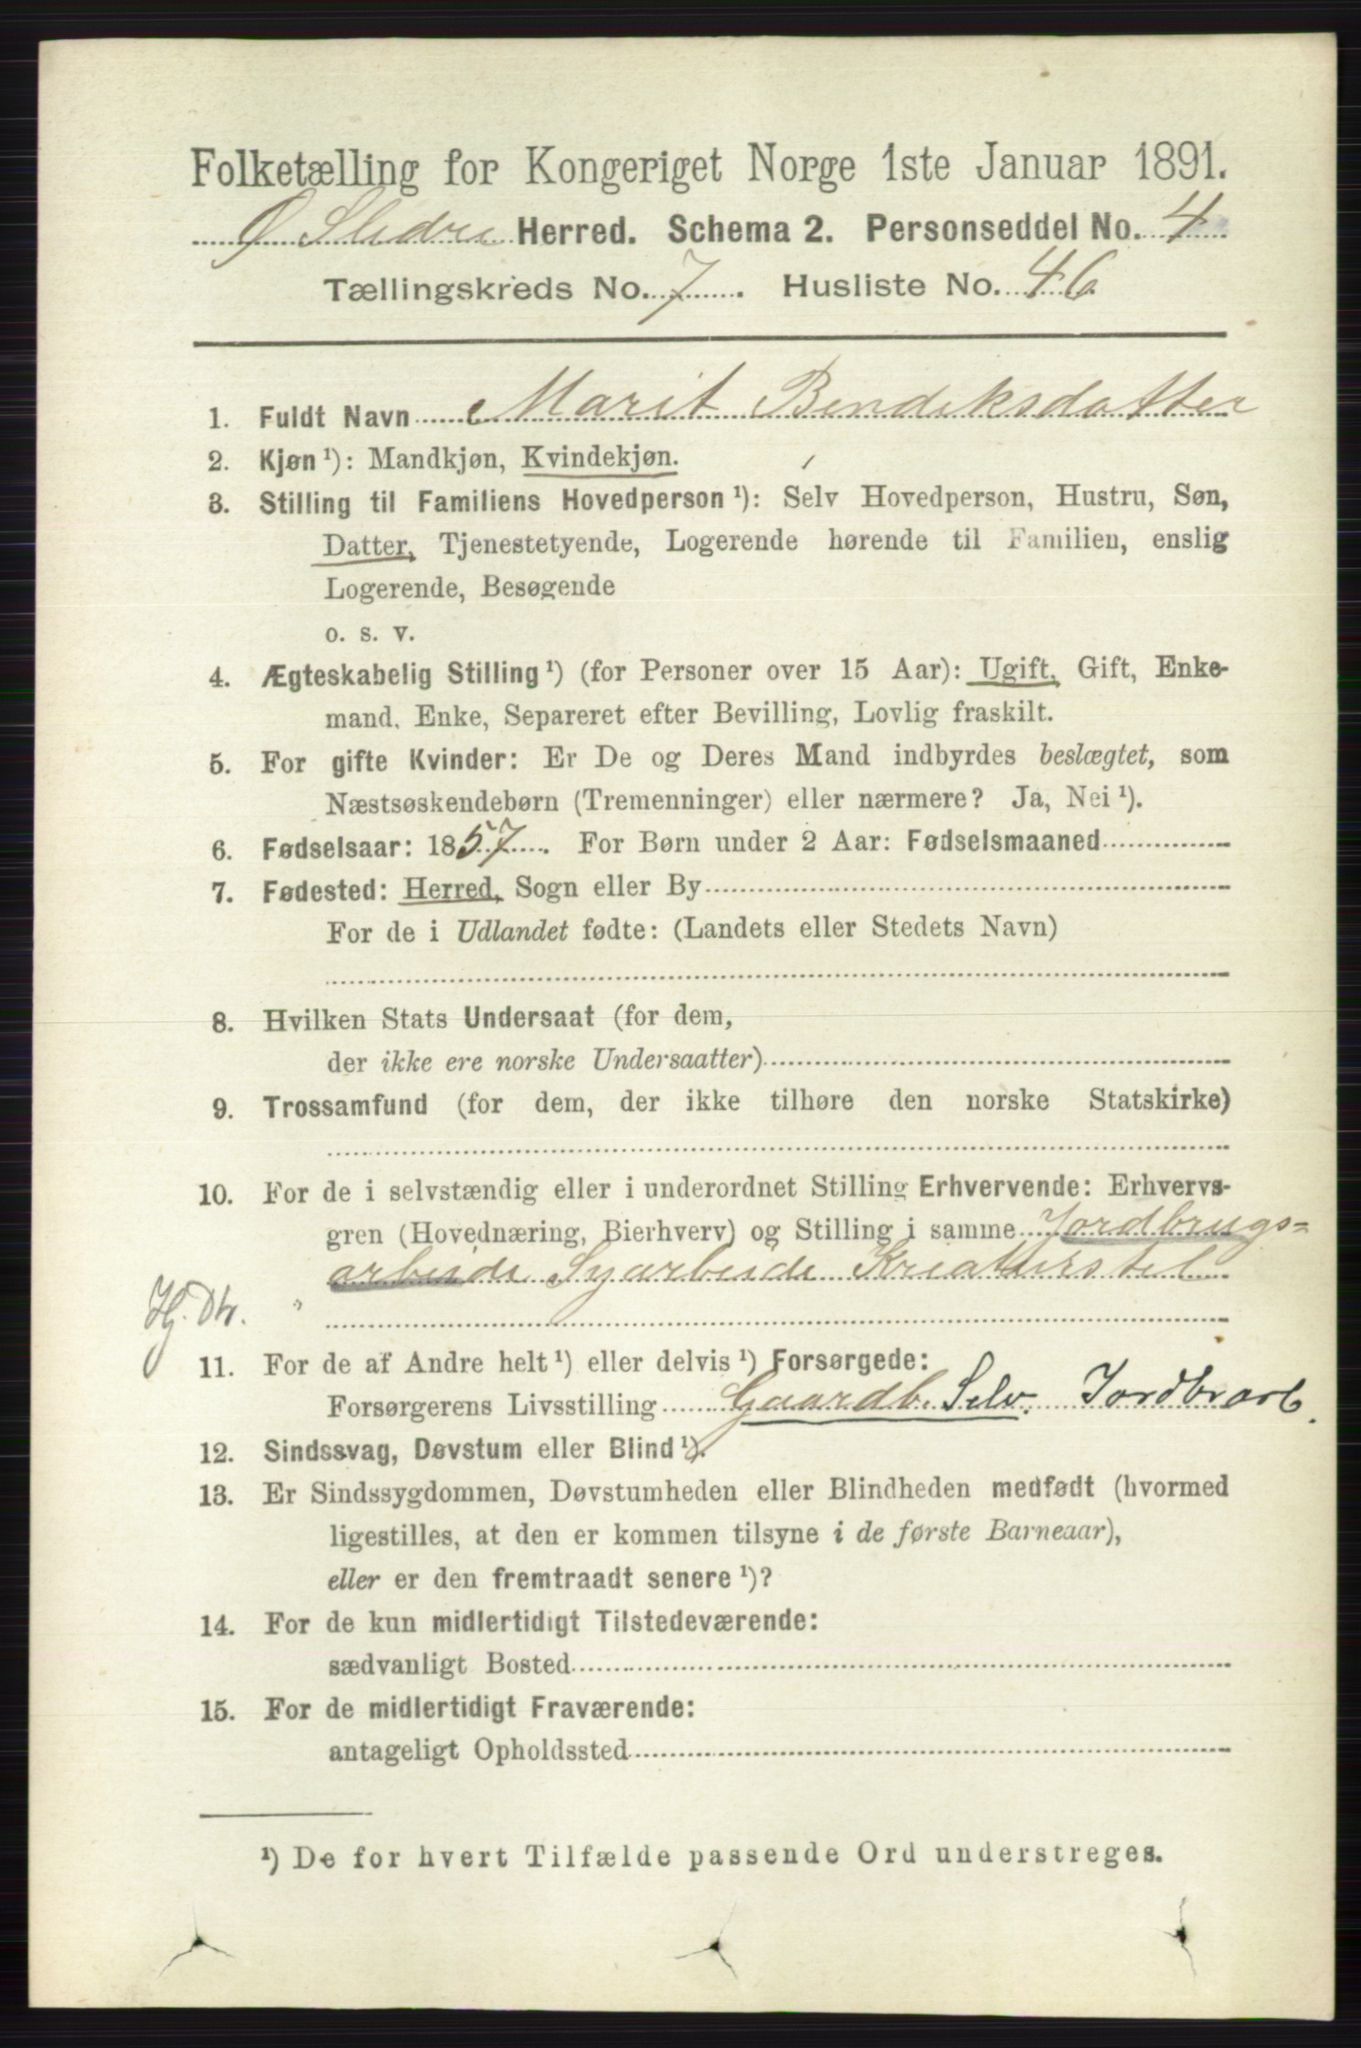 Folketælling for Kongeriget Norge 1ste Januar 1891.
Ø Slidre Herred. Schema 2. Personseddel No. 4
Tællingskreds No. 7. Husliste No. 46
1. Fuldt Navn Marit Bendiksdatter
2. Kjøn ¹): Mandkjøn, Kvindekjøn.
3. Stilling til Familiens Hovedperson ¹): Selv Hovedperson, Hustru, Søn,
Datter, Tjenestetyende, Logerende hørende til Familien, enslig
Logerende, Besøgende
o. s. v.
4. Ægteskabelig Stilling ¹) (for Personer over 15 Aar): Ugift, Gift, Enke-
mand, Enke, Separeret efter Bevilling, Lovlig fraskilt.
5. For gifte Kvinder: Er De og Deres Mand indbyrdes beslægtet, som
Næstsøskendebørn (Tremenninger) eller nærmere? Ja, Nei ¹).
6. Fødselsaar: 1857. For Børn under 2 Aar: Fødselsmaaned
7. Fødested: Herred, Sogn eller By
For de i Udlandet fødte: (Landets eller Stedets Navn)
8. Hvilken Stats Undersaat (for dem,
der ikke ere norske Undersaatter)
9. Trossamfund (for dem, der ikke tilhøre den norske Statskirke)
10. For de i selvstændig eller i underordnet Stilling Erhvervende: Erhvervs-
gren (Hovednæring, Bierhverv) og Stilling i samme Jordbrugs=
arbeide Syarbeide Kreaturstel
Hj. Dtr. "
11. For de af Andre helt ¹) eller delvis ¹) Forsørgede:
Forsørgerens Livsstilling Gaardb. Selv. Jordbrarb.
12. Sindssvag, Døvstum eller Blind ¹).
13. Er Sindssygdommen, Døvstumheden eller Blindheden medfødt (hvormed
ligestilles, at den er kommen tilsyne i de første Barneaar),
eller er den fremtraadt senere ¹)?
14. For de kun midlertidigt Tilstedeværende:
sædvanligt Bosted
15. For de midlertidigt Fraværende:
antageligt Opholdssted
¹) De for hvert Tilfælde passende Ord understreges.